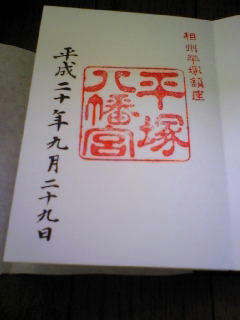 相州平塚鎮座
平塚
八幡宮
平成二十年九月二十九日